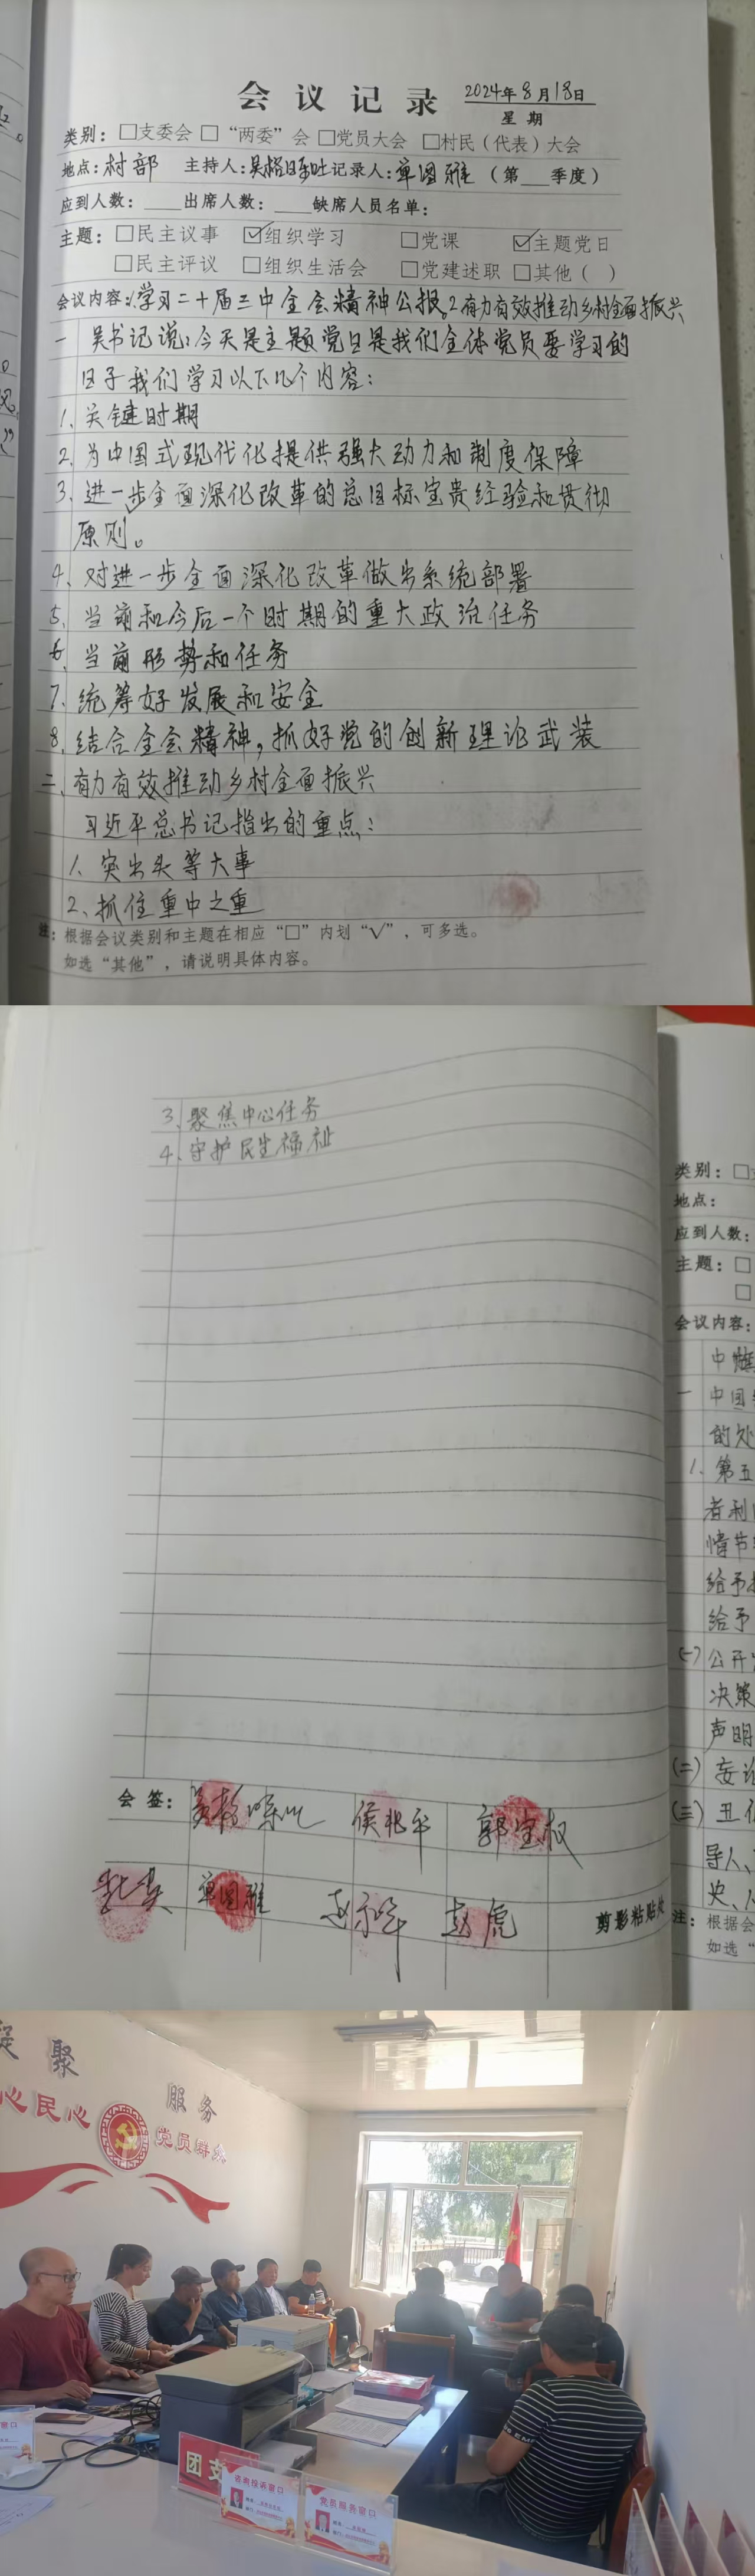 会议记录
2024年8月18日
星期
类别：□支委会 □“两委”会 □党员大会 □村民（代表）大会
地点：村部 主持人：吴 记录人：单图雅（第__季度）
应到人数：____出席人数：____缺席人员名单：
主题：□民主议事 ☑组织学习 □党课 ☑主题党日
□民主评议 □组织生活会 □党建述职 □其他（ ）
会议内容：1.学习二十届三中全会精神公报。2有力有效推动乡村全面振兴
一 吴书记说：今天是主题党日是我们全体党员要学习的
日子我们学习以下几个内容：
1、关键时期
2、为中国式现代化提供强大动力和制度保障
3、进一步全面深化改革的总目标宝贵经验和贯彻
原则。
4、对进一步全面深化改革做出系统部署
5、当前和今后一个时期的重大政治任务
6、当前形势和任务
7、统筹好发展和安全
8、结合全会精神，抓好党的创新理论武装
二、有力有效推动乡村全面振兴
习近平总书记指出的重点：
1、突出头等大事
2、抓住重中之重
注：根据会议类别和主题在相应“□”内划“√”，可多选。
如选“其他”，请说明具体内容。
3、聚焦中心任务
4、守护民生福祉
会签：
侯兆平 郭宝权
单图雅 赵虎
剪影粘贴处
类别：□
地点：
应到人数：
主题：□
□
会议内容：
一 中国
的处
1、第五
者利
情节
给予
给予
(一)公开
决策
声明
(二)妄议
(三)丑
导人、
史、
注：根据会
如选“
聚 服务
心民心 党员群众
团支
咨询投诉窗口
党员服务窗口